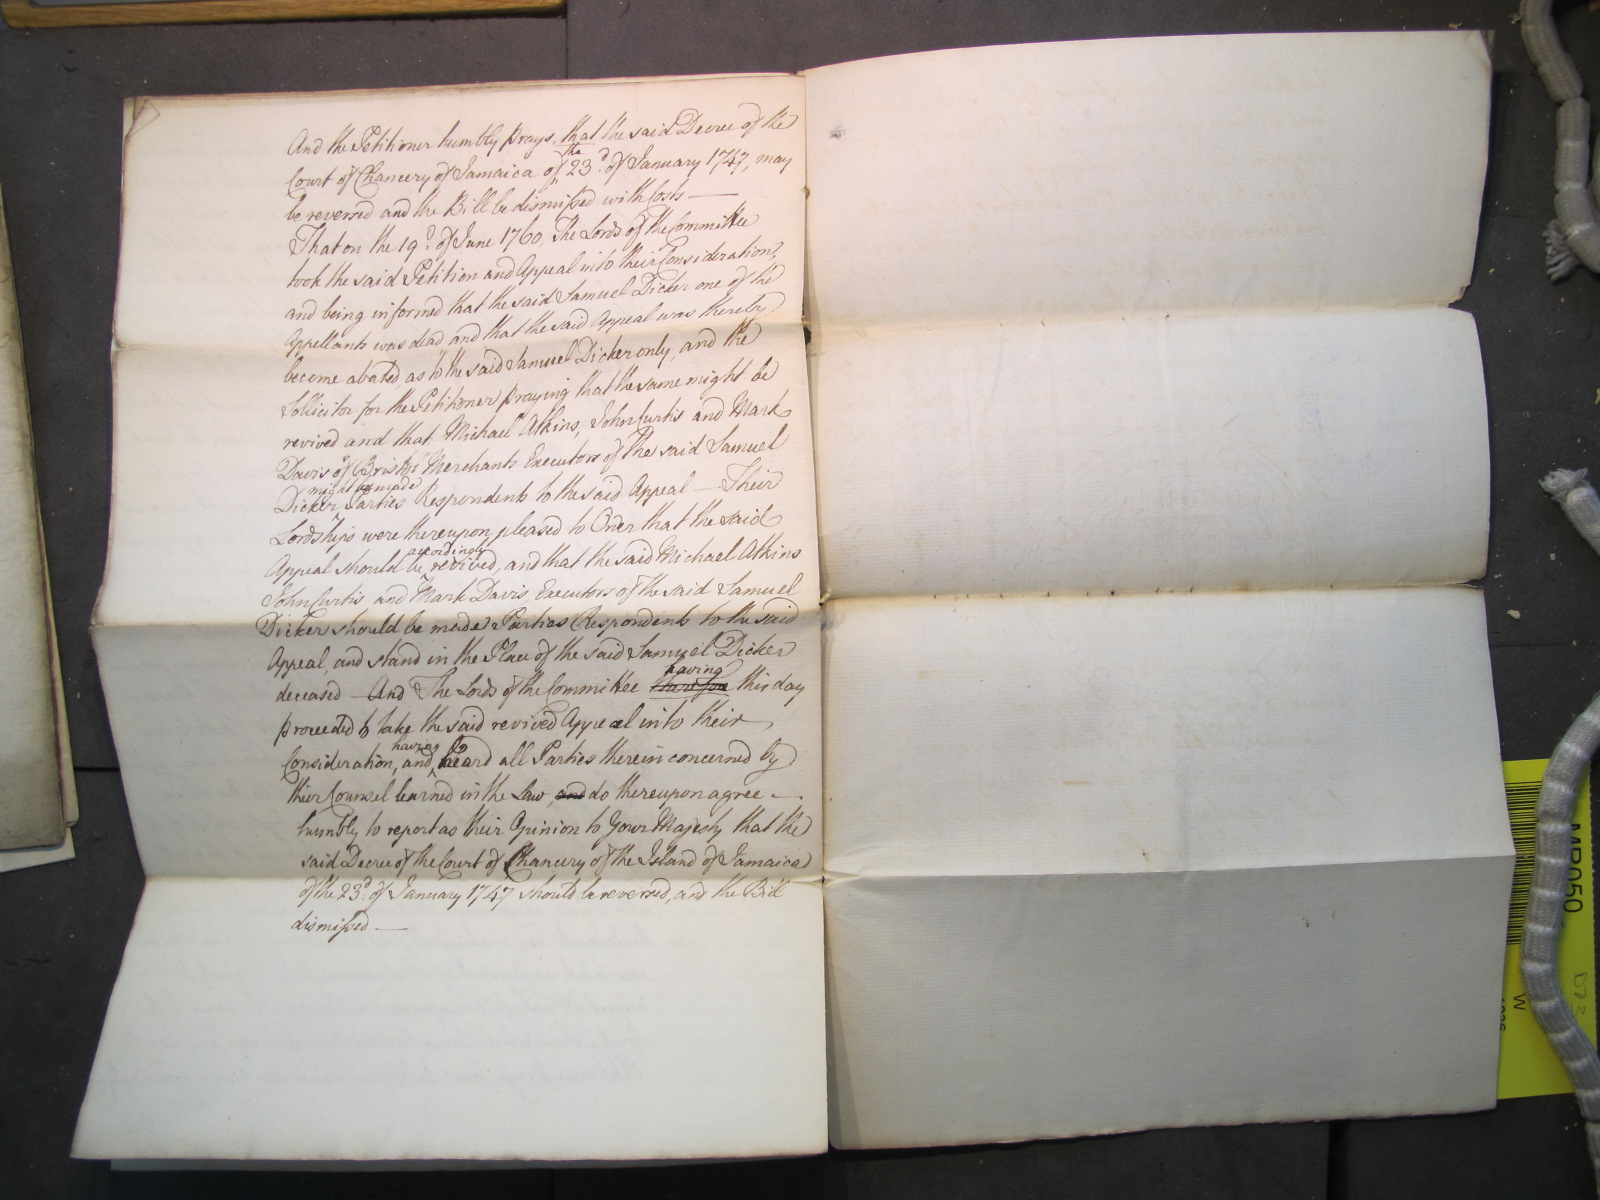 And the Petitioner humbly prays, that the said Decree of the
the
Court of Chancery of Jamaica of 23d. of January 1747, may
be reversed and the Bill be dismissed with Costs —
That on the 19th. of June 1760. The Lords of the Committee
took the said Petition and Appeal into their Consideration,
and being informed that the said Samuel Dicker one of the
Appellants was dead and that the said Appeal was thereby
become abated as to the said Samuel Dicker only, and the
Sollicitor for the Petitioner praying that the same might be
revived and that Michael Atkins, John Curtis and Mark
Davis of Bristol Merchants Executors of the said Samuel
might be made
Dicker Parties Respondents to the said Appeal — Their
Lordships were thereupon pleased to Order that the said
accordingly
Appeal should be revived, and that the said Michael Atkins
John Curtis and Mark Davis, Executors of the said Samuel
Dicker should be made Parties Respondents to the said
Appeal, and stand in the Place of the said Samuel Dicker
having
deceased — And The Lords of the Committee therefore this day
proceeded to take the said revived Appeal into their
having
Consideration, and heard all Parties therein concerned by
their Counsel learned in the Law, and do thereupon agree —
humbly to report as their Opinion to Your Majesty that the
said Decree of the Court of Chancery of the Island of Jamaica
of the 23d. of January 1747 should be reversed, and the Bill
dismissed —
MR050
W